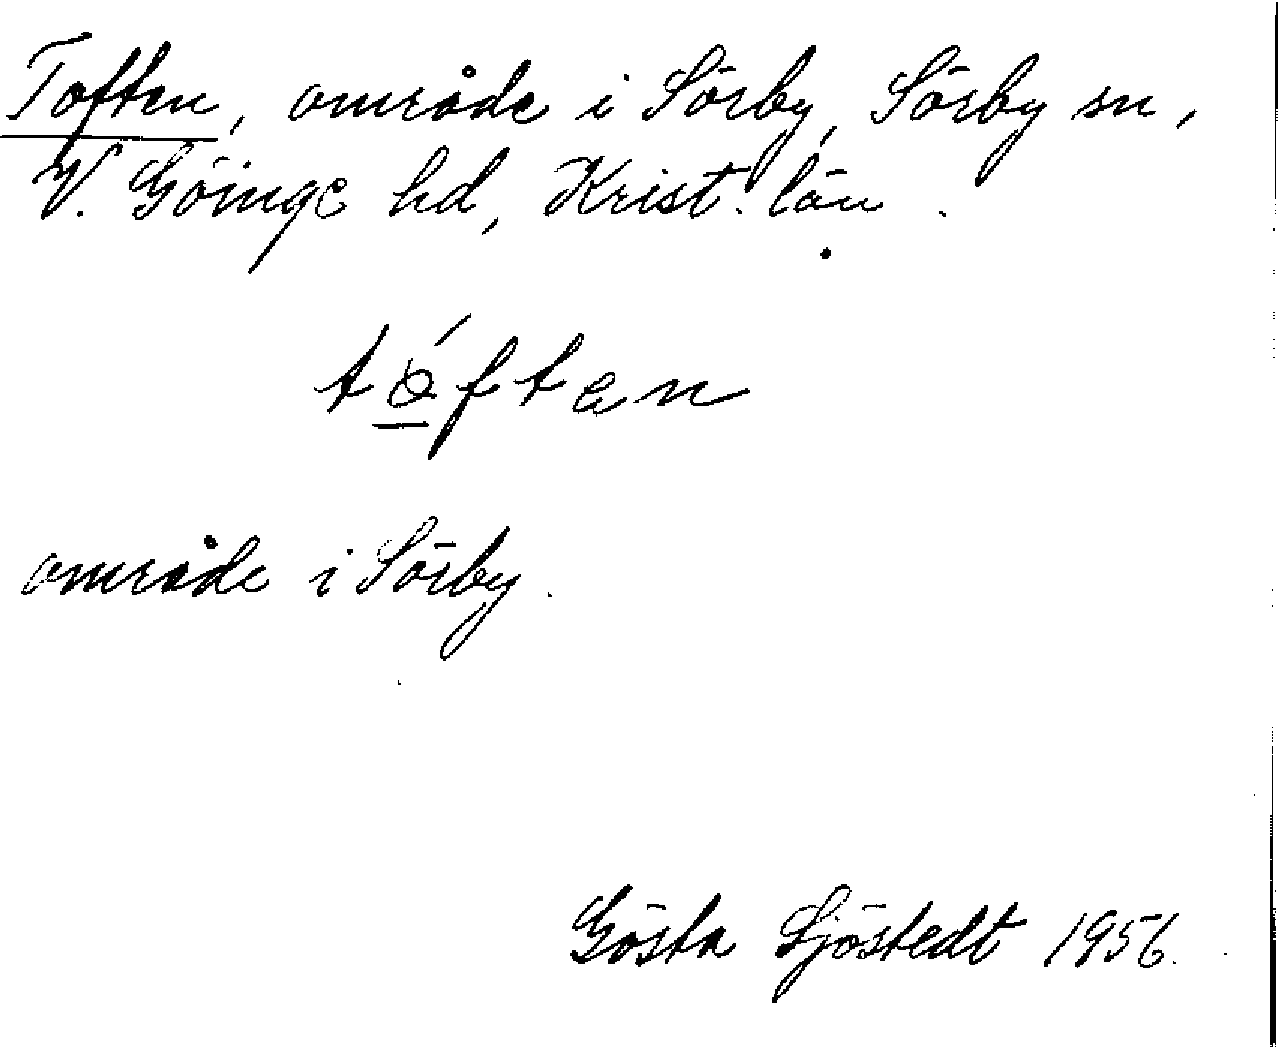 Toften, område i Sörby, Sörby sn,
V. Göinge hd, Krist. län.
tóften
område i Sörby.
Gösta Sjöstedt 1956.